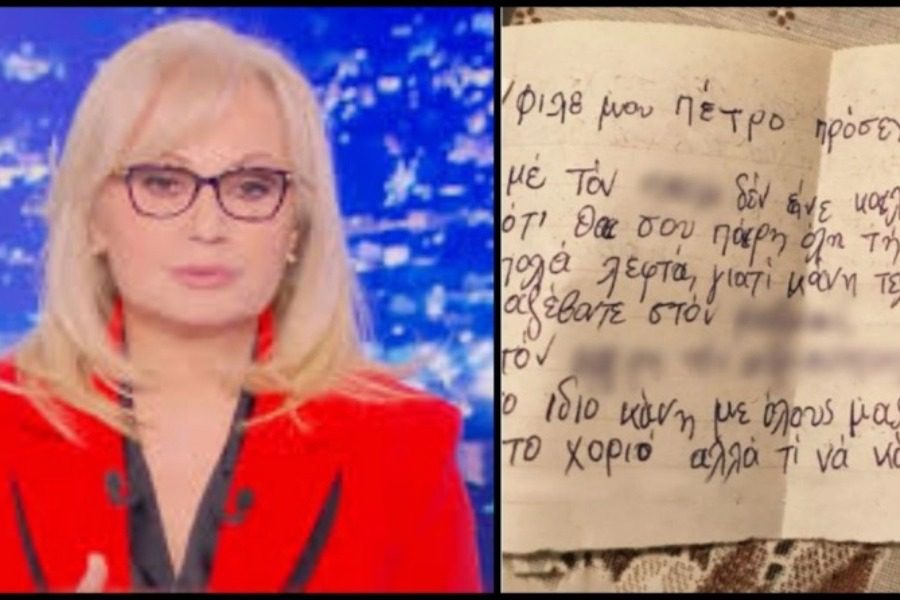 φιλε μου πέτρο πρόσε
μέ τόν δέν είνε καλ
ότι θα σου πάρη όλη τή
πολά λεφτά, γιατί κάνη τε
αξέβατε στόν
τόν
ο ιδιο κάνη με όλους μα
το χοριό αλλά τί νά κά